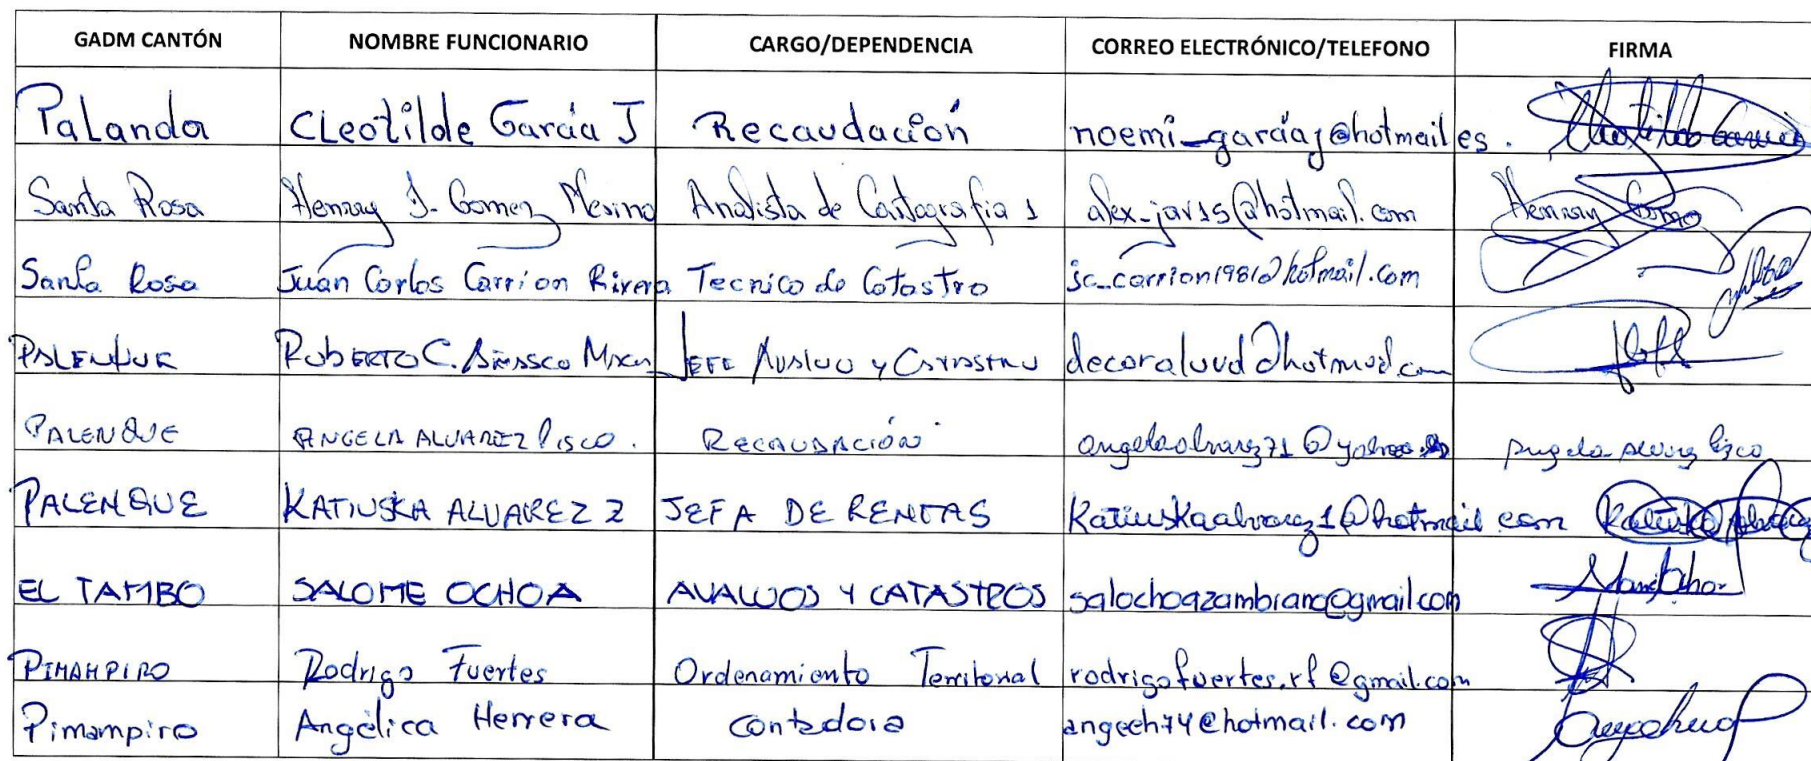 GADM CANTÓN NOMBRE FUNCIONARIO CARGO/DEPENDENCIA CORREO ELECTRÓNICO/TELEFONO FIRMA
Palanda Cleotilde García J Recaudación noemi_garciaj@hotmail.es. Cleotilde García
Santa Rosa Henrry J. Gomez Merino Analista de Cartografia 1 alex_jav15@hotmail.com Henrry Gomez
Santa Rosa Juan Carlos Carrion Rivera Tecnico de Catastro jc_carrion1981@hotmail.com
PALENQUE ROBERTO C. JEFE AVALUO Y CATASTRO
PALENQUE ANGELA ALVAREZ LISCO. RECAUDACIÓN Angela Alvarez Lisco
PALENQUE KATIUSKA ALVAREZ Z JEFA DE RENTAS Katiuskaalvarez1@hotmail.com Katiuska Alvarez
EL TAMBO SALOME OCHOA AVALUOS Y CATASTROS salochoazambrano@gmail.com
PIMAMPIRO Rodrigo Fuertes Ordenamiento Territorial rodrigofuertes.rf@gmail.com
Pimampiro Angélica Herrera Contadora angech74@hotmail.com